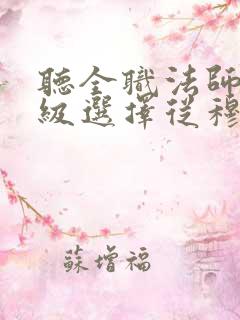 聽全職法師
級選擇從穆
蘇增福